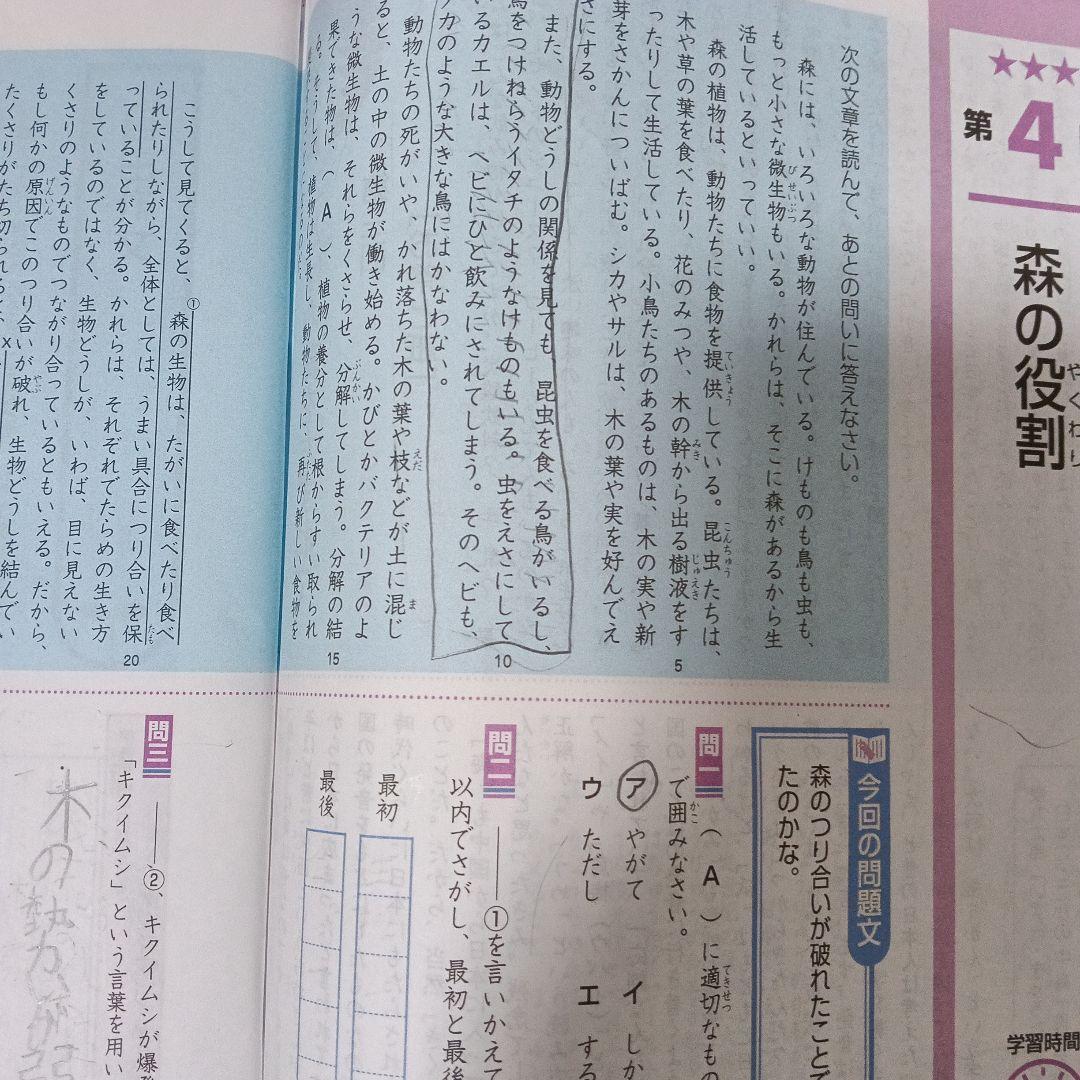 ★★★
第4
森の役割
やくわり
学習時間
次の文章を読んで、あとの問いに答えなさい。
森には、いろいろな動物が住んでいる。けものも鳥も虫も、
もっと小さな微生物もいる。かれらは、そこに森があるから生
活しているといっていい。
森の植物は、動物たちに食物を提供している。昆虫たちは、
木や草の葉を食べたり、花のみつや、木の幹から出る樹液をす
ったりして生活している。小鳥たちのあるものは、木の実や新
芽をさかんについばむ。シカやサルは、木の葉や実を好んでえ
さにする。
また、動物どうしの関係を見ても、昆虫を食べる鳥がいるし、
鳥をつけねらうイタチのようなけものもいる。虫をえさにして
いるカエルは、ヘビにひと飲みにされてしまう。そのヘビも、
カのような大きな鳥にはかなわない。
動物たちの死がいや、かれ落ちた木の葉や枝などが土に混じ
ると、土の中の微生物が働き始める。かびとかバクテリアのよ
うな微生物は、それらをくさらせ、分解してしまう。分解の結
果できた物は、（ A ）、植物の養分として根からすい取られ
る。そうして、植物は生長し、動物たちに、再び新しい食物を
こうして見てくると、①森の生物は、たがいに食べたり食べ
られたりしながら、全体としては、うまい具合につり合いを保
っていることが分かる。かれらは、それぞれでたらめの生き方
をしているのではなく、生物どうしが、いわば、目に見えない
くさりのようなものでつながり合っているともいえる。だから、
もし何かの原因でこのつり合いが破れ、生物どうしを結んでい
たくさりがたち切られると、X
5
10
15
20
今回の問題文
森のつり合いが破れたことで
たのかな。
問一 （ A ）に適切なもの
で囲みなさい。
ア やがて イ しか
ウ ただし エ する
問二 ――①を言いかえて
以内でさがし、最初と最後
最初
最後
問三 ――②、キクイムシが爆発
「キクイムシ」という言葉を用い
木の勢力が弱